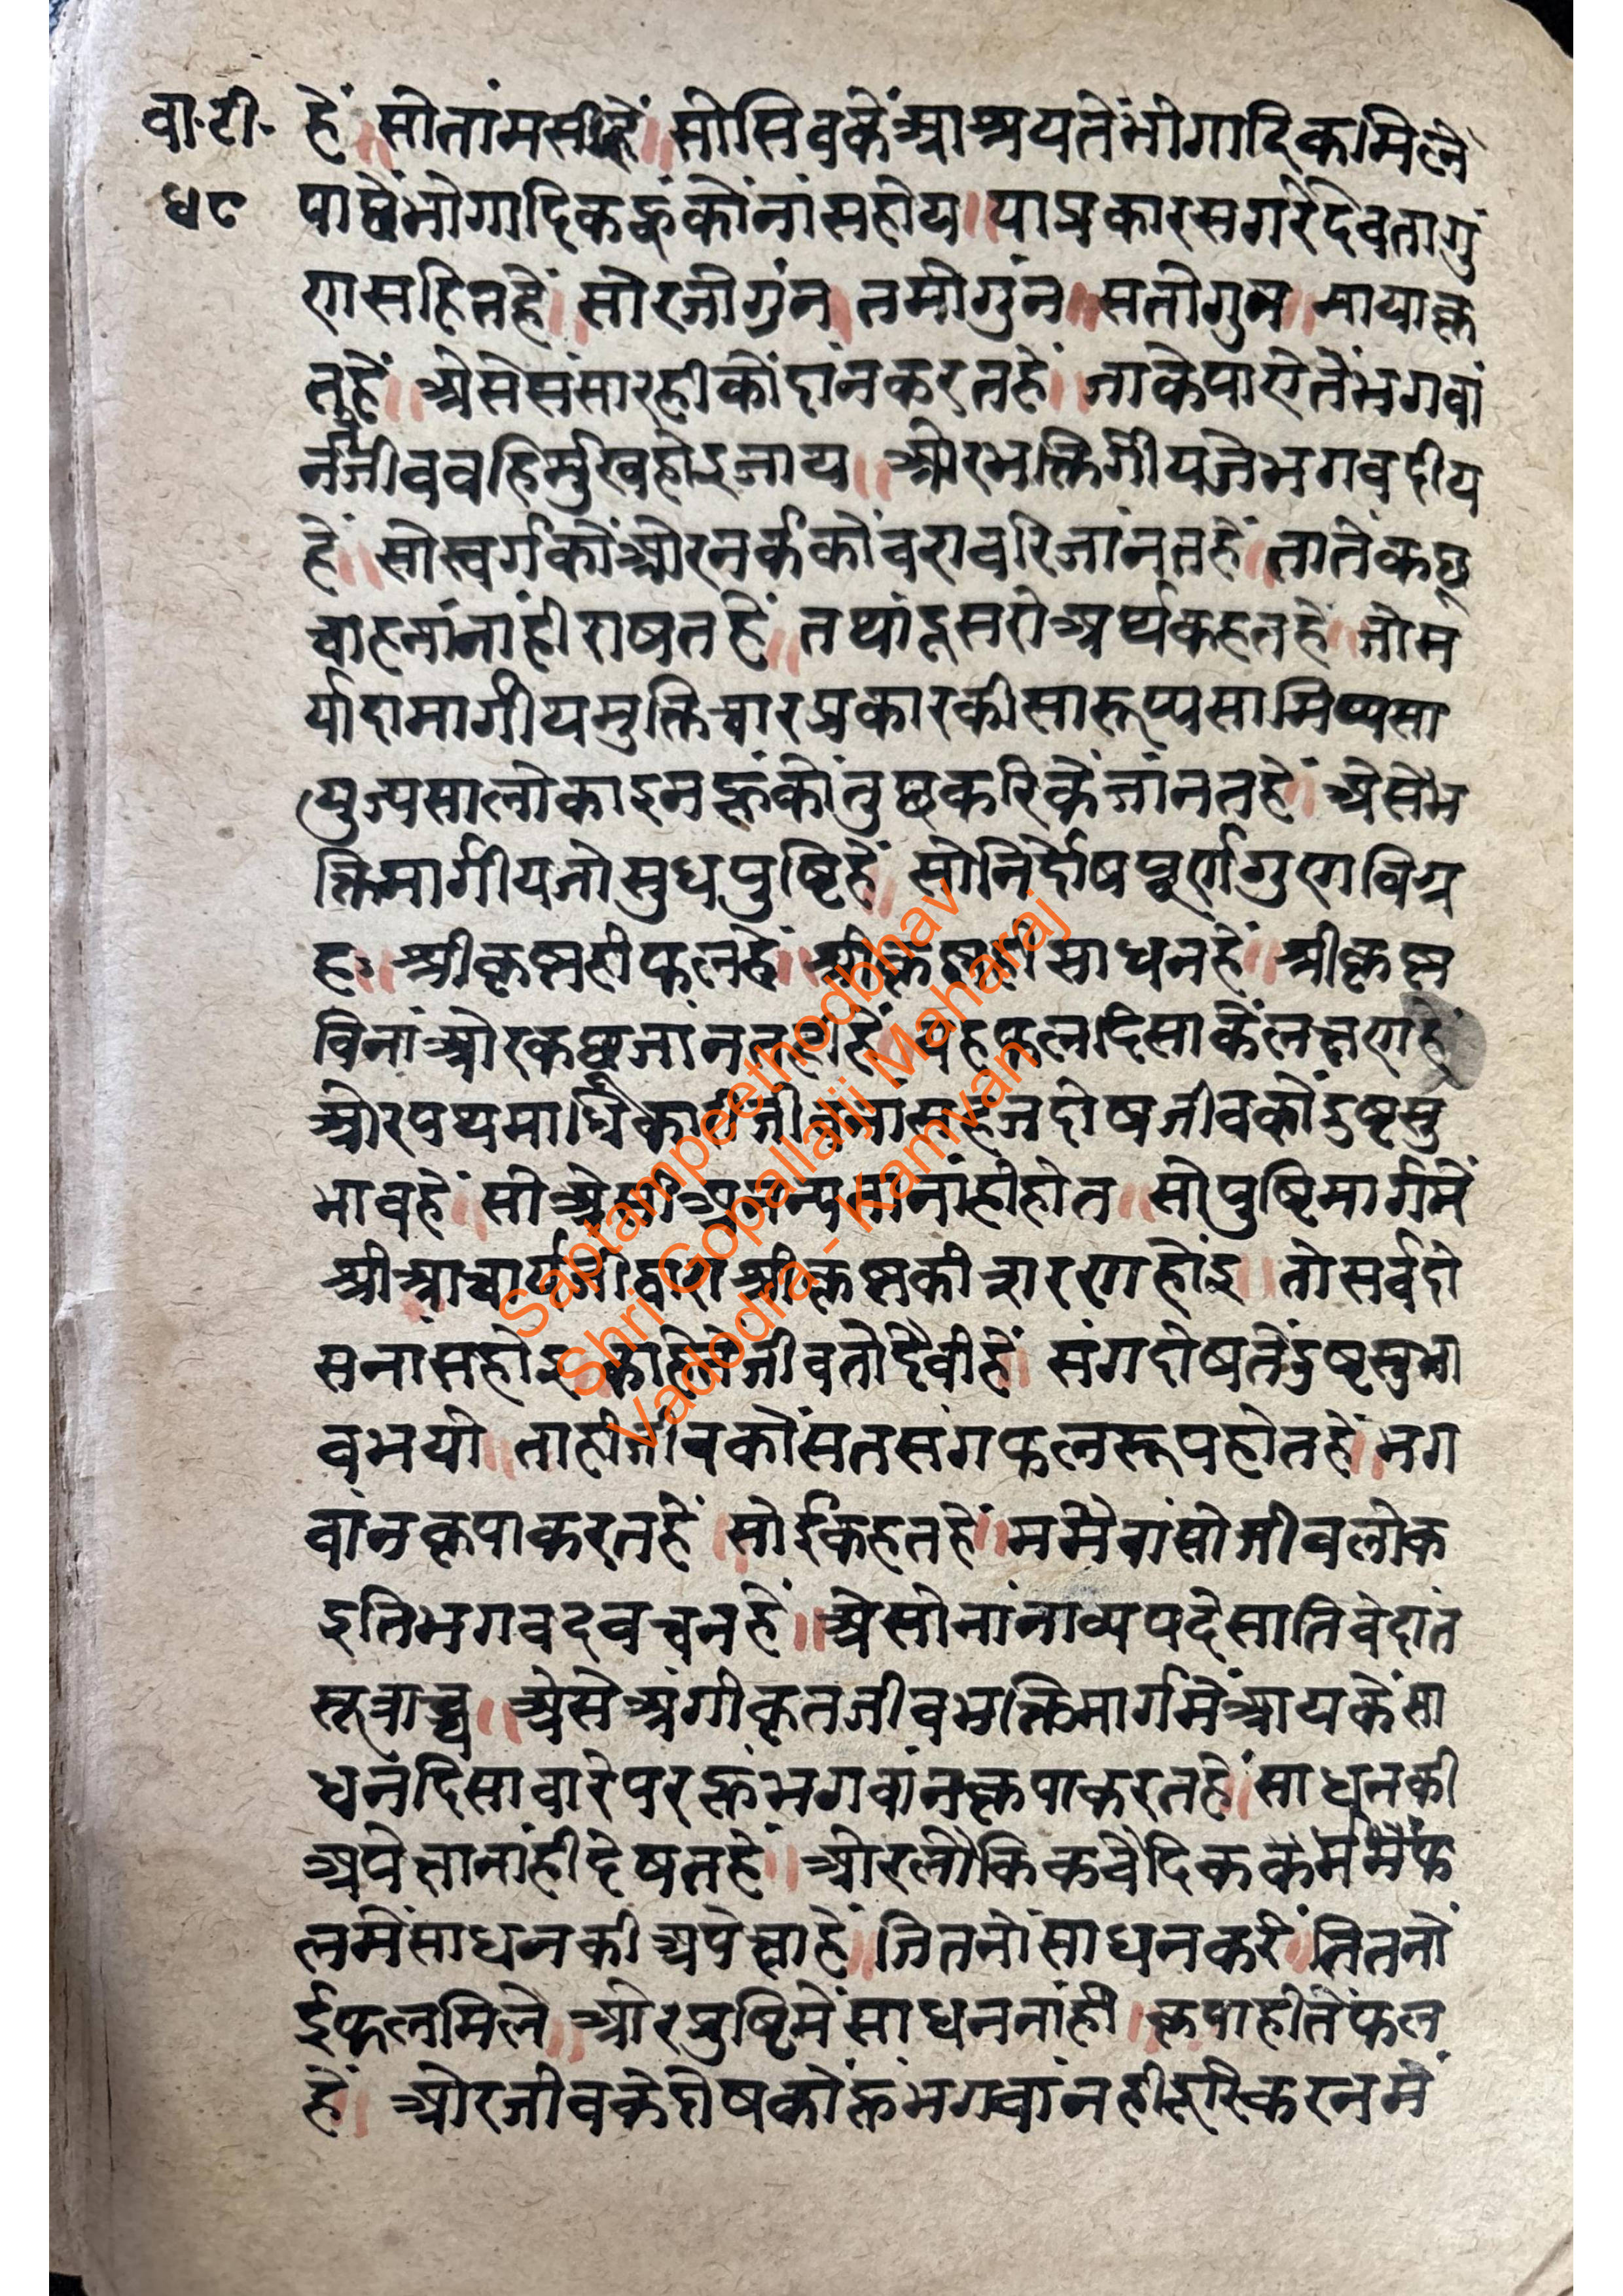 वा॰टी॰
४८
हें ॥ सोतांमसीहें ॥ सोसिवकेंआश्रयतेंभोगादिकमिलें
पाछेंभोगादिकहूंकोंनांसहोय ॥ याप्रकारसगरेदेवतागु
णसहितहें ॥ सोरजोगुंन ॥ तमोगुंन ॥ सतोगुन ॥ मायाकृ
तहें ॥ अेसेसंसारहीकोंदांनकरतहें ॥ जाकेपाऐतेंभगवां
नतेंजीववहिर्मुखहोइजाय ॥ ओरभक्तिर्गीयजेभगवदीय
हें ॥ सोस्वर्गकोंओरनर्ककोंवरावरिजांनतहें ॥ तातेंकछू
चाहनांनांहीराषतहें ॥ तथांदूसरोअर्थकहतहें ॥ जोम
र्यादामार्गीयमुक्तिचारप्रकारकीसारूप्यसामिप्यसा
युज्यसालोकाइनहूंकोंतुछकरिकेंजांनतहें ॥ अेसेभ
क्तिमार्गीयजोसुधपुष्टिहें ॥ सोनिर्दोषपूर्णगुणविग्र
हः ॥ श्रीकृष्णहीफलहें ॥ श्रीकृष्णहीसाधनहें ॥ श्रीकृष्ण
विनांओरकछूजांनतनांहीहें ॥ यहफलदिसाकेंलक्षणहें
ओरपथमार्धिकारीजीवनांसहजदोषजीवकोंदुष्टसु
भावहें ॥ सोअेसीअनन्यतानांहीहोत ॥ सोपुष्टिमार्गमें
श्रीआचार्यजीद्वाराश्रीकृष्णकीशरणहोंइ ॥ तोसर्वदो
सनांसहोइ ॥ काहेतेंजीवतोदैवीहें ॥ संगदोषतेंदुष्टसुभा
वभयो ॥ ताहीजीवकोंसतसंगफलरूपहोतहें ॥ भग
वांनकृपाकरतहें ॥ सोईकहतहें ॥ ममैवांसोजीवलोक
इतिभगवदवचनहें ॥ अेसोनांनाव्यपदेसातिवेदांत
सूत्राच्च ॥ अेसेअंगीकृतजीवभक्तिमार्गमेंआयकेंसा
धनदिसावारेपरहूंभगवांनकृपाकरतहें ॥ साधनकी
अपेक्षानांहीदेषतहें ॥ ओरलौकिकवैदिककर्ममेंफ
लमेंसाधनकीअपेक्षाहें ॥ जितनोंसाधनकरें ॥ तितनों
ईफलमिले ॥ ओरपुष्टिमेंसाधननांही ॥ कृपाहीतेंफल
हें ॥ ओरजीवकेदोषकोंहूंभगवांनहीदूरिकरनमें
Saptampeethodbhav
Shri Gopallalji Maharaj
Vadodra - Kamvan